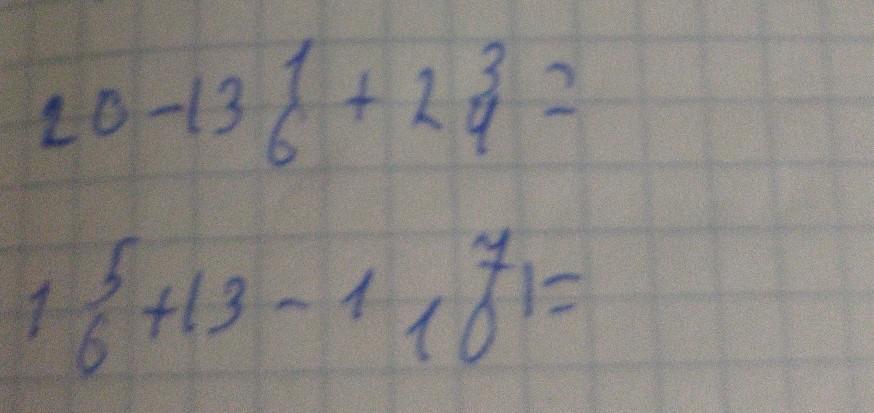 20 - 13 1/6 + 2 3/4 =
1 5/6 + 13 - 1 7/10 =